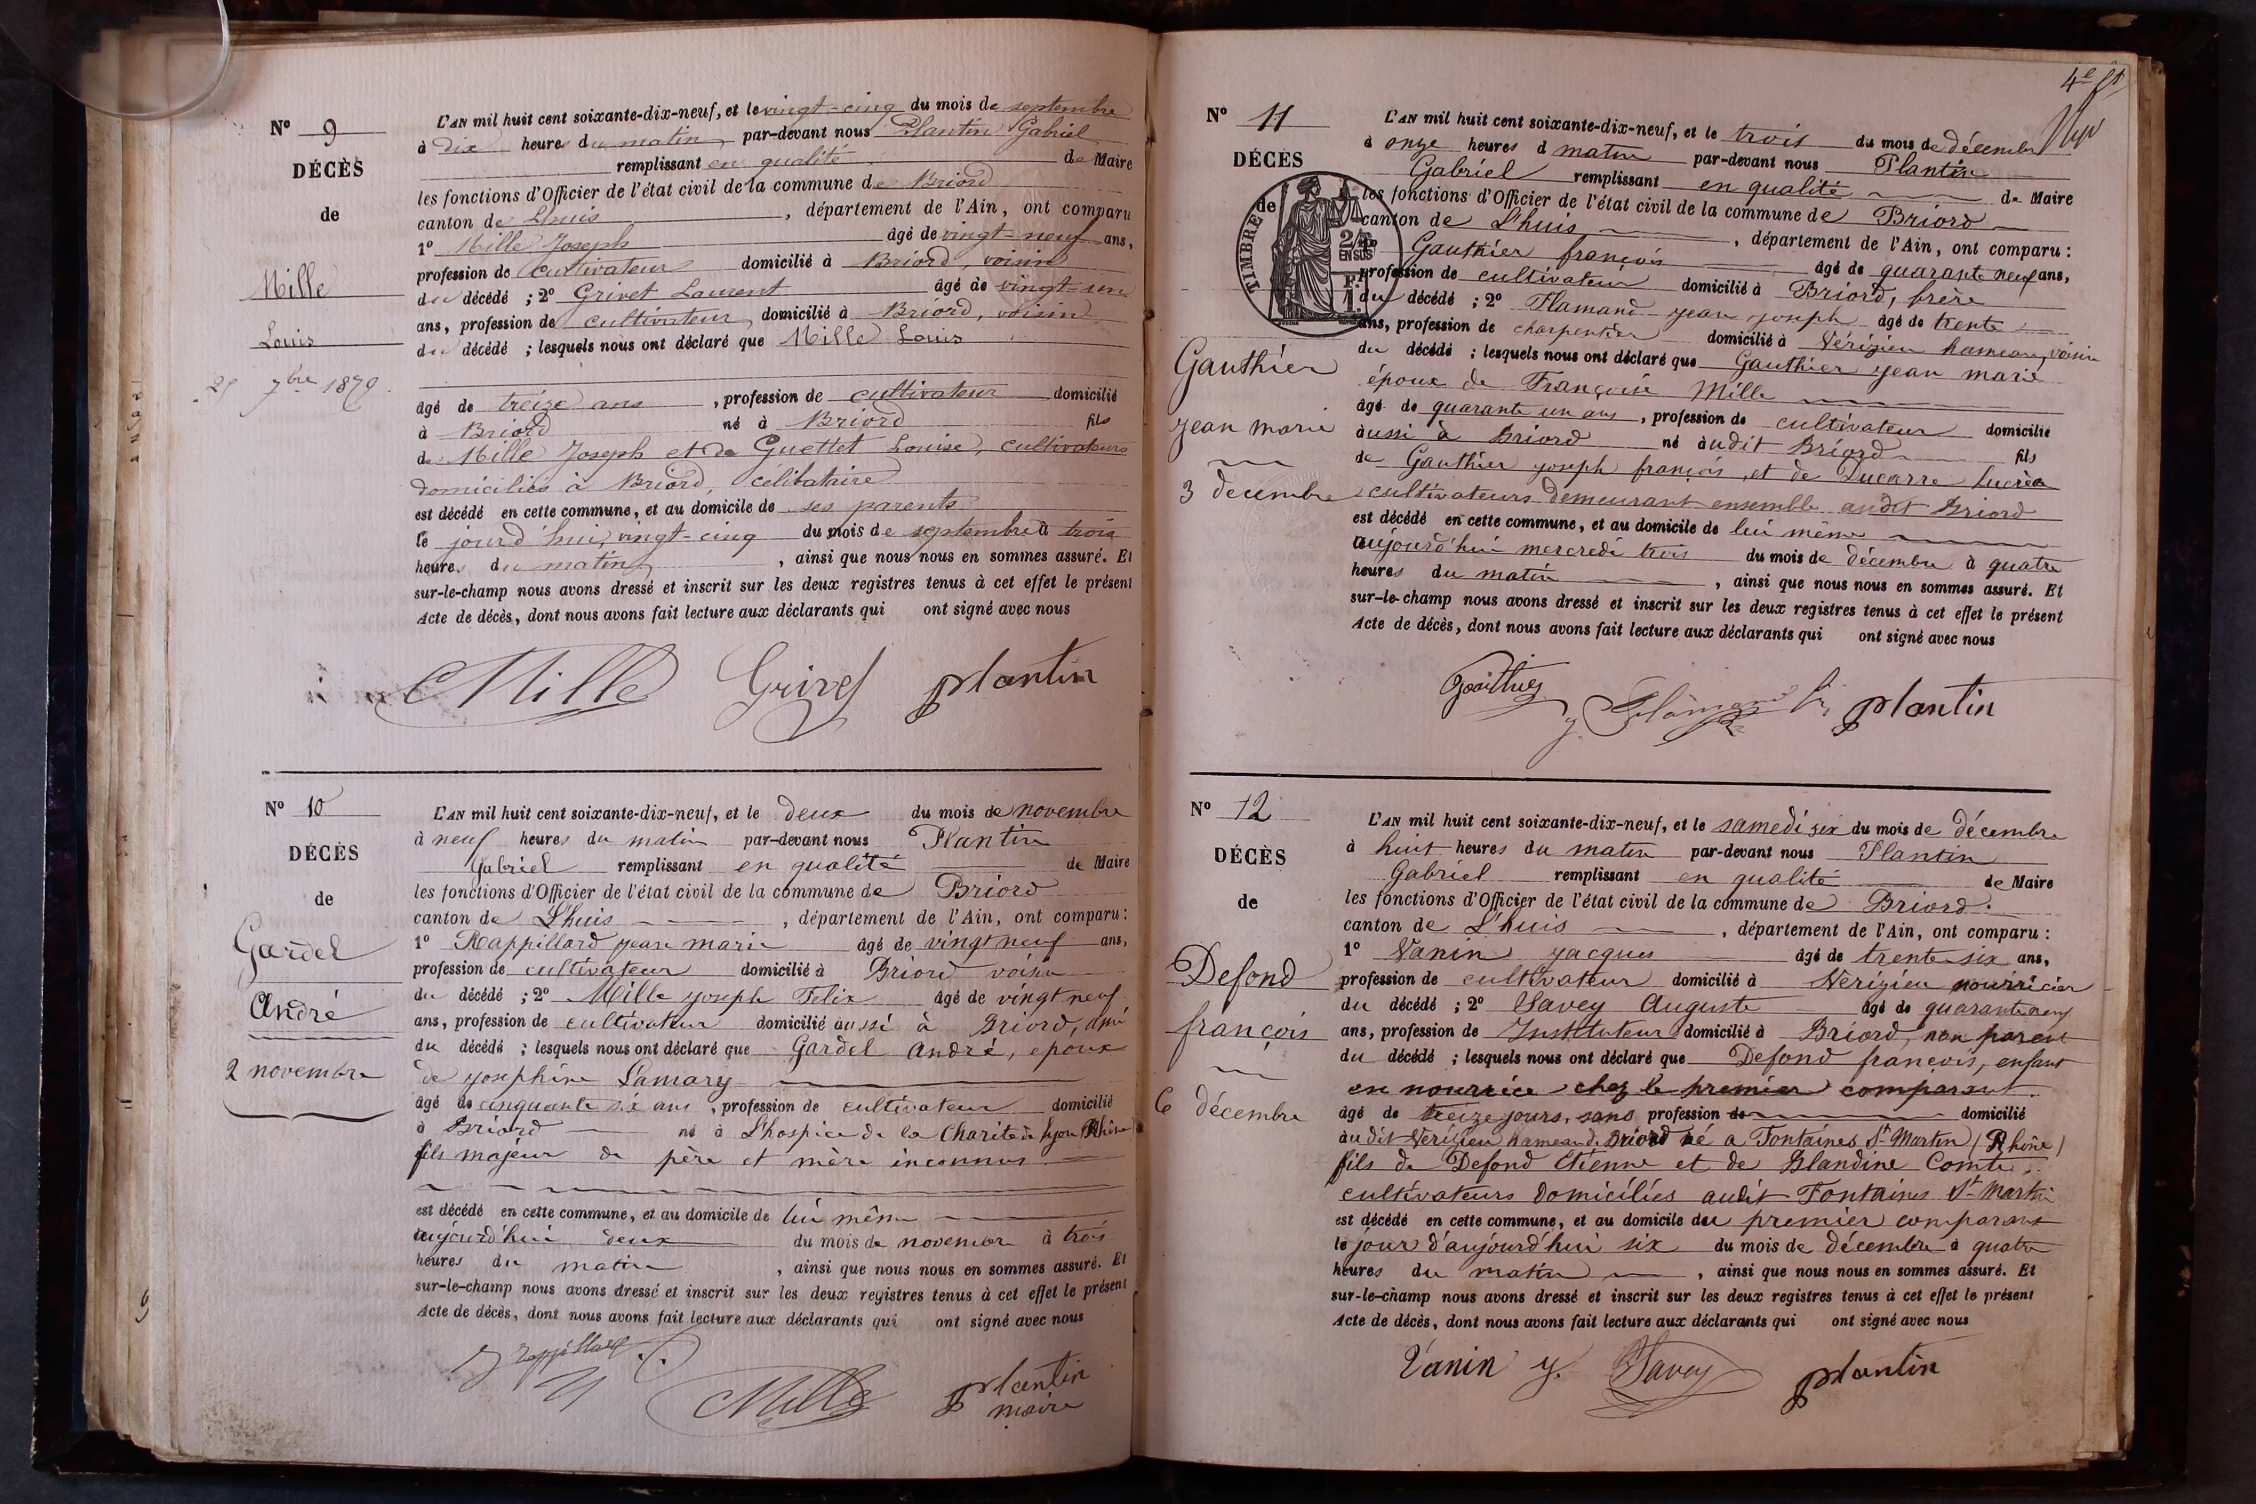 N° 9
DÉCÈS
de
Mille
Louis
25 7bre 1879.
L'AN mil huit cent soixante-dix-neuf, et le vingt-cinq du mois de septembre
à dix heures du matin par-devant nous Plantin Gabriel
remplissant en qualité de Maire
les fonctions d'Officier de l'état civil de la commune de Briord
canton de Lhuis, département de l'Ain, ont comparu
1° Mille Joseph âgé de vingt-neuf ans,
profession de cultivateur domicilié à Briord, voisin
du décédé ; 2° Grivet Laurent âgé de vingt-un
ans, profession de cultivateur, domicilié à Briord, voisin
du décédé ; lesquels nous ont déclaré que Mille Louis
âgé de treize ans, profession de cultivateur domicilié
à Briord né à Briord fils
de Mille Joseph et de Guettet Louise, cultivateurs
domiciliés à Briord, célibataire
est décédé en cette commune, et au domicile de ses parents
le jourd'hui, vingt-cinq du mois de septembre à trois
heures du matin, ainsi que nous nous en sommes assuré. Et
sur-le-champ nous avons dressé et inscrit sur les deux registres tenus à cet effet le présent
Acte de décès, dont nous avons fait lecture aux déclarants qui ont signé avec nous
Mille Grivet Plantin
N° 10
DÉCÈS
de
Gardel
André
2 novembre
L'AN mil huit cent soixante-dix-neuf, et le deux du mois de novembre
à neuf heures du matin par-devant nous Plantin
Gabriel remplissant en qualité de Maire
les fonctions d'Officier de l'état civil de la commune de Briord
canton de L'huis, département de l'Ain, ont comparu :
1° Rappillard jean marie âgé de vingt neuf ans,
profession de cultivateur domicilié à Briord voisin
du décédé ; 2° Mille joseph Felix âgé de vingt neuf
ans, profession de cultivateur domicilié aussi à Briord, ami
du décédé ; lesquels nous ont déclaré que Gardel André, epoux
de josephine Lamary
âgé de cinquante six ans, profession de cultivateur domicilié
à Briord né à L'hospice de la Charité de Lyon Rhône
fils majeur de père et mère inconnus
est décédé en cette commune, et au domicile de lui même
aujourd'hui deux du mois de novembre à trois
heures du matin, ainsi que nous nous en sommes assuré. Et
sur-le-champ nous avons dressé et inscrit sur les deux registres tenus à cet effet le présent
Acte de décès, dont nous avons fait lecture aux déclarants qui ont signé avec nous
Rappillard
Mille Plantin
maire
4e ft
N° 11
DÉCÈS
de
TIMBRE
2/10 EN SUS
F. 1
Gauthier
jean marie
3 decembre
L'AN mil huit cent soixante-dix-neuf, et le trois du mois de décembre
à onze heures d matin par-devant nous Plantin
Gabriel remplissant en qualité de Maire
les fonctions d'Officier de l'état civil de la commune de Briord
canton de L'huis, département de l'Ain, ont comparu :
Gauthier françois âgé de quarante neuf ans,
profession de cultivateur domicilié à Briord, frère
du décédé ; 2° Flamand jean joseph âgé de trente
ans, profession de charpentier domicilié à Vérizieu hameau, voisin
du décédé ; lesquels nous ont déclaré que Gauthier jean marie
époux de Françoise Mille
âgé de quarante un ans, profession de cultivateur domicilié
aussi à Briord né audit Briord fils
de Gauthier joseph françois, et de Ducarre Lucrèce
cultivateurs demeurant ensemble audit Briord
est décédé en cette commune, et au domicile de lui même
aujourd'hui mercredi trois du mois de décembre à quatre
heures du matin, ainsi que nous nous en sommes assuré. Et
sur-le-champ nous avons dressé et inscrit sur les deux registres tenus à cet effet le présent
Acte de décès, dont nous avons fait lecture aux déclarants qui ont signé avec nous
Gauthier Flamand Plantin
N° 12
DÉCÈS
de
Defond
françois
6 décembre
L'AN mil huit cent soixante-dix-neuf, et le samedi six du mois de décembre
à huit heures du matin par-devant nous Plantin
Gabriel remplissant en qualité de Maire
les fonctions d'Officier de l'état civil de la commune de Briord.
canton de L'huis, département de l'Ain, ont comparu :
1° Vanin jacques âgé de trente six ans,
profession de cultivateur domicilié à Verizieu nourricier
du décédé ; 2° Savey Auguste âgé de quarante neuf
ans, profession de Instituteur domicilié à Briord, non parent
du décédé ; lesquels nous ont déclaré que Defond françois, enfant
en nourrice chez le premier comparant.
âgé de treize jours, sans profession de domicilié
au dit Verizieu hameau de Briord né a Fontaines St Martin (Rhône)
fils de Defond Etienne et de Blandine Comte
cultivateurs domiciliés audit Fontaines St Martin
est décédé en cette commune, et au domicile du premier comparant
le jour d'aujourd'hui six du mois de décembre à quatre
heures du matin, ainsi que nous nous en sommes assuré. Et
sur-le-champ nous avons dressé et inscrit sur les deux registres tenus à cet effet le présent
Acte de décès, dont nous avons fait lecture aux déclarants qui ont signé avec nous
Vanin J. Savey Plantin